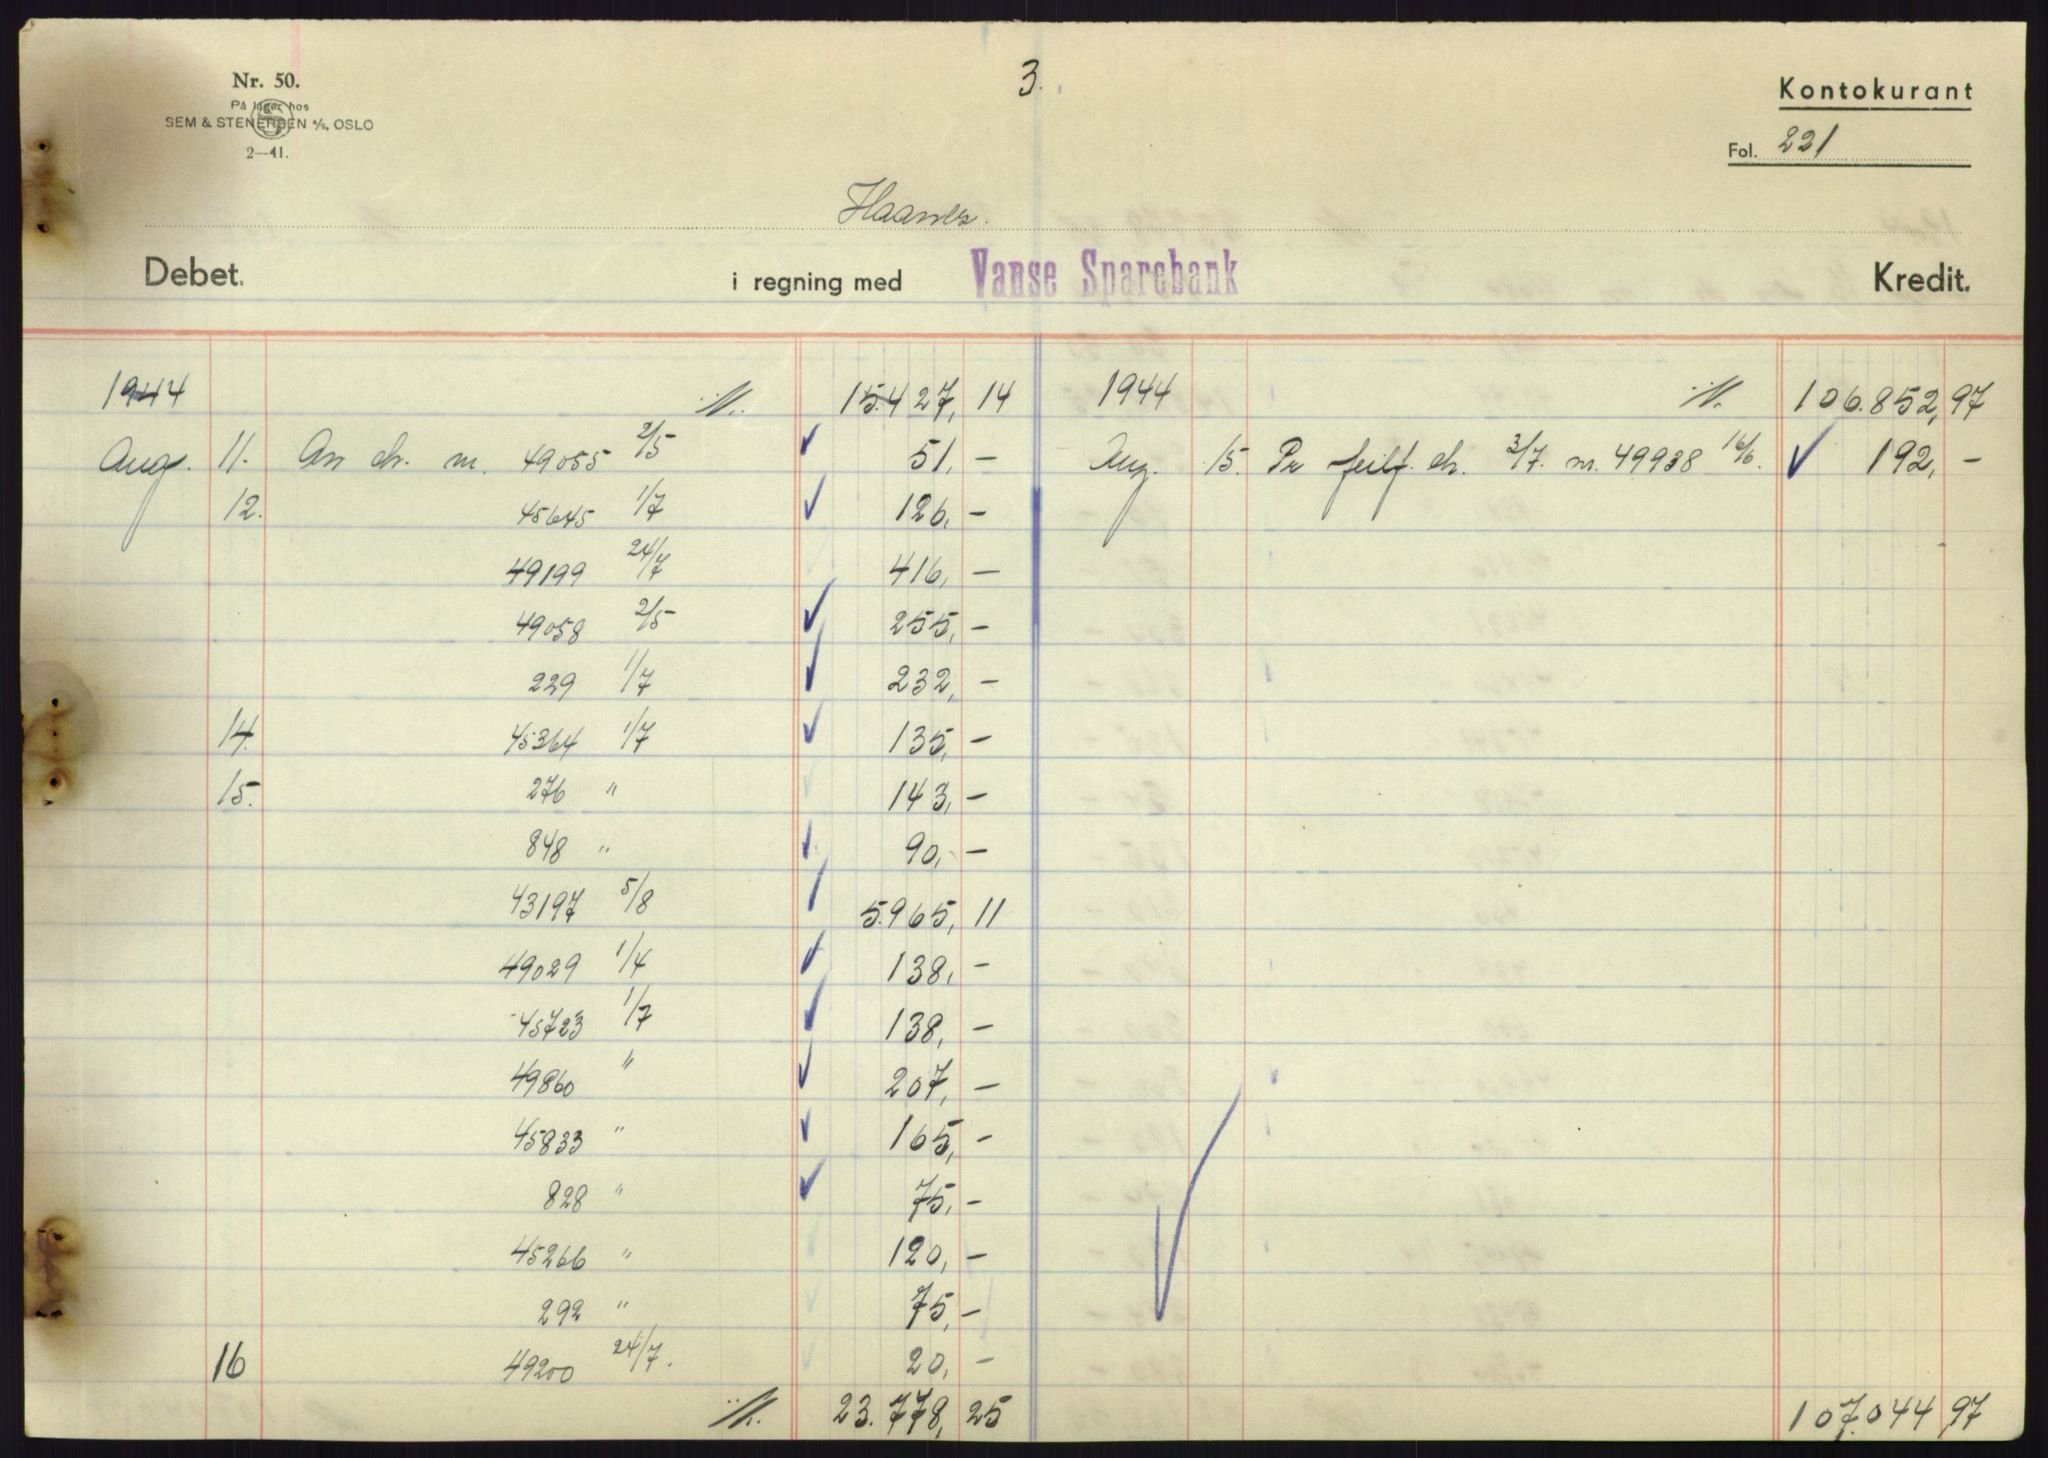 Nr. 50.
3.
Kontokurant
På lager hos
SEM & STENERSEN A/S, OSLO
2—41.
Fol. 221
Haanes.
Debet.
i regning med Vanse Sparebank
Kredit.
1944 15.427, 14
Aug. 11. An ch. nr. 49055 2/5 51, —
12. 45645 1/7 126, —
49199 24/7 416, —
49058 2/5 255, —
229 1/7 232, —
14. 45364 1/7 135, —
15. 276 " 143, —
848 " 90, —
43197 5/8 5.965, 11
49029 1/4 138, —
45723 1/7 138, —
49860 " 207, —
45833 " 165, —
828 " 75, —
45266 " 120, —
292 " 75, —
16 49200 24/7. 20, —
23.778, 25
1944 106.852, 97
Aug. 15. Pr feilf. ch. 3/7. nr. 49938 16/6. 192, —
107.044 97